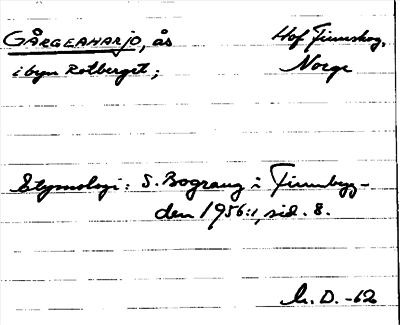 GÅRGEAHARJO, ås
i byn Rotberget;
Hof Finnskog,
Norge
Etymologi: S. Bograng i Finnbyg-
den 1956:1, sid. 8.
h. D. -62